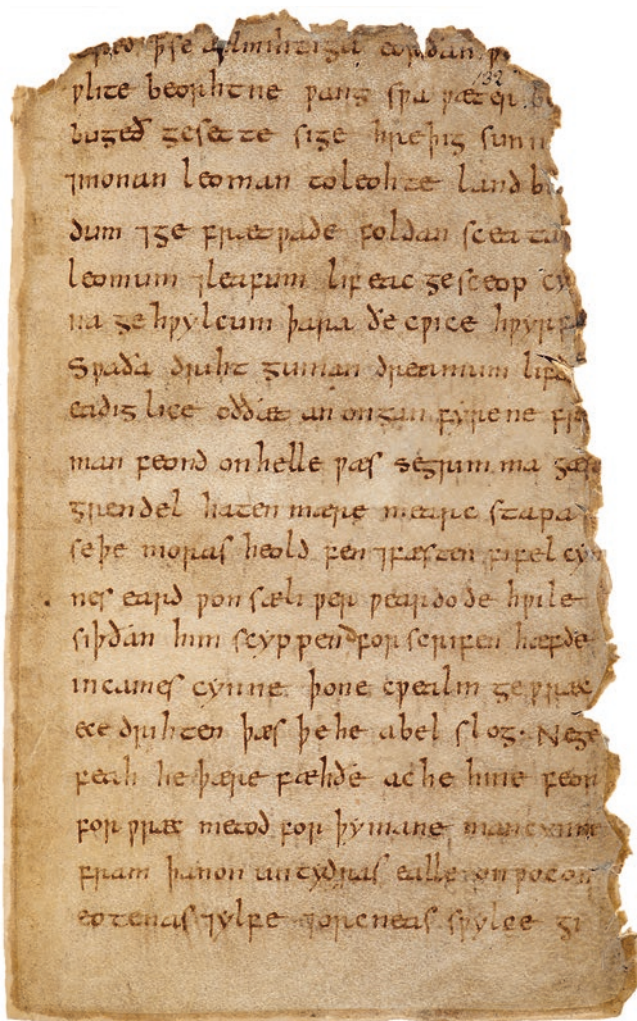 þ se ælmihtiga eorðan
132
ƿlite beorhtne ƿang sƿa ƿæter
bugeð gesette sige hreþig sunn
⁊monan leoman toleohte land b
dum ⁊ge frætƿade foldan sceata
leomum ⁊leafum lif eac gesceop cy
na ge hƿylcum þara ðe cƿice hƿyrf
Sƿa ða driht guman dreamum lifd
eadig lice oððæt an ongan fyrene fre
man feond onhelle ƿæs segrimma gæs
grendel haten mære mearc stapa
seþe moras heold fen ⁊fæsten fifel cyn
nes eard ƿon sæli ƿer ƿeardode hƿile
siþðan him scyppend for scrifen hæfde
incames cynne þone cƿealm ge ƿræc
ece drihten þæs þe he abel slog· Nege
feah he þære fæhðe ac he hine feor
for ƿræc metod for þy mane mancynne
fram þanon untydras ealle onƿocon
eotenas ⁊ylfe ⁊orcneas sƿylce gi